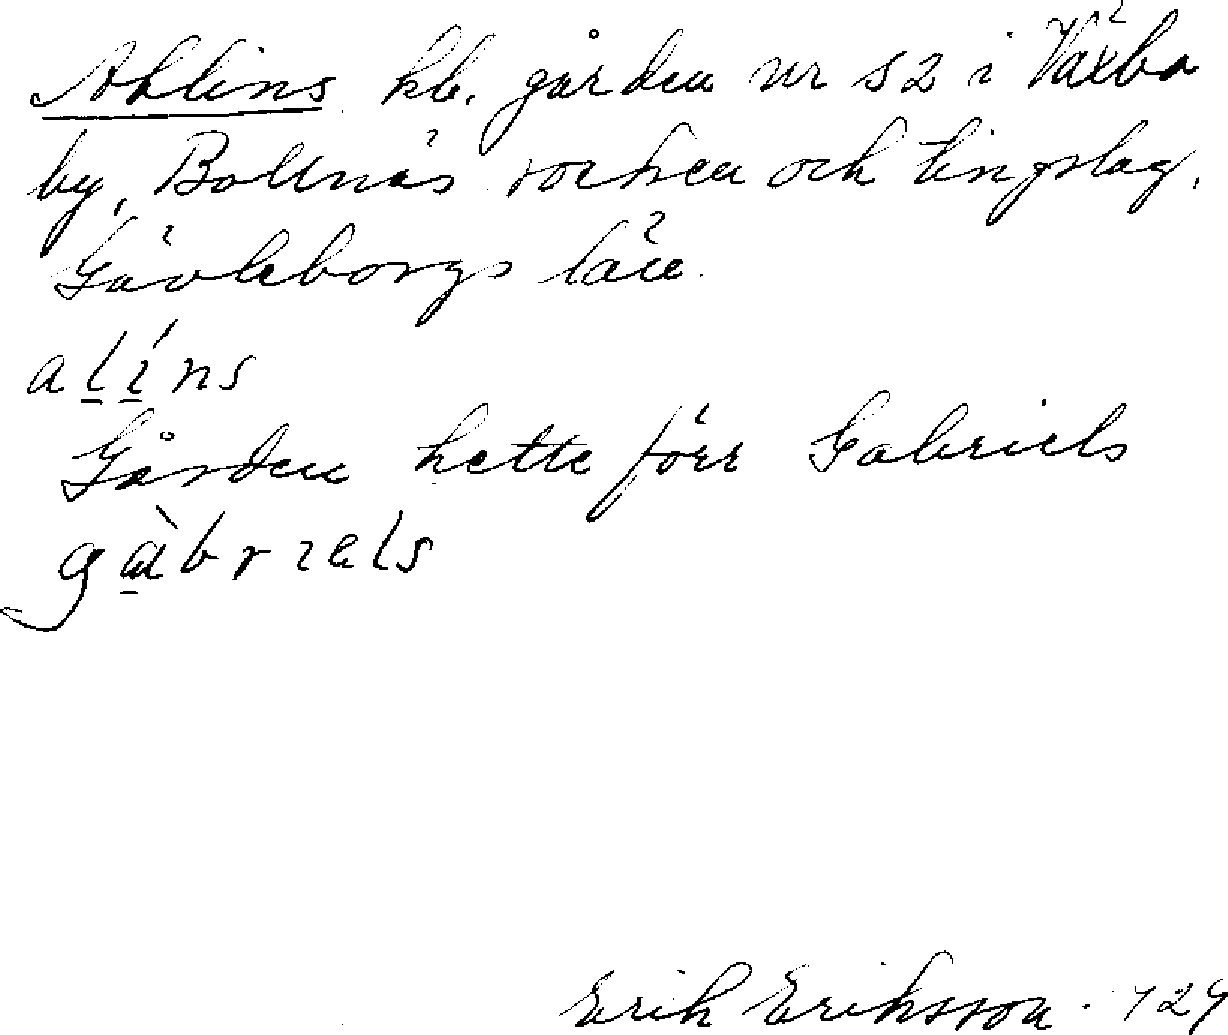 Ahlins kb. gården nr 52 i Växbo
by, Bollnäs socken och tingslag,
Gävleborgs län.
alíns
Gården hette förr Gabriels
gàbriels
Erik Eriksson.